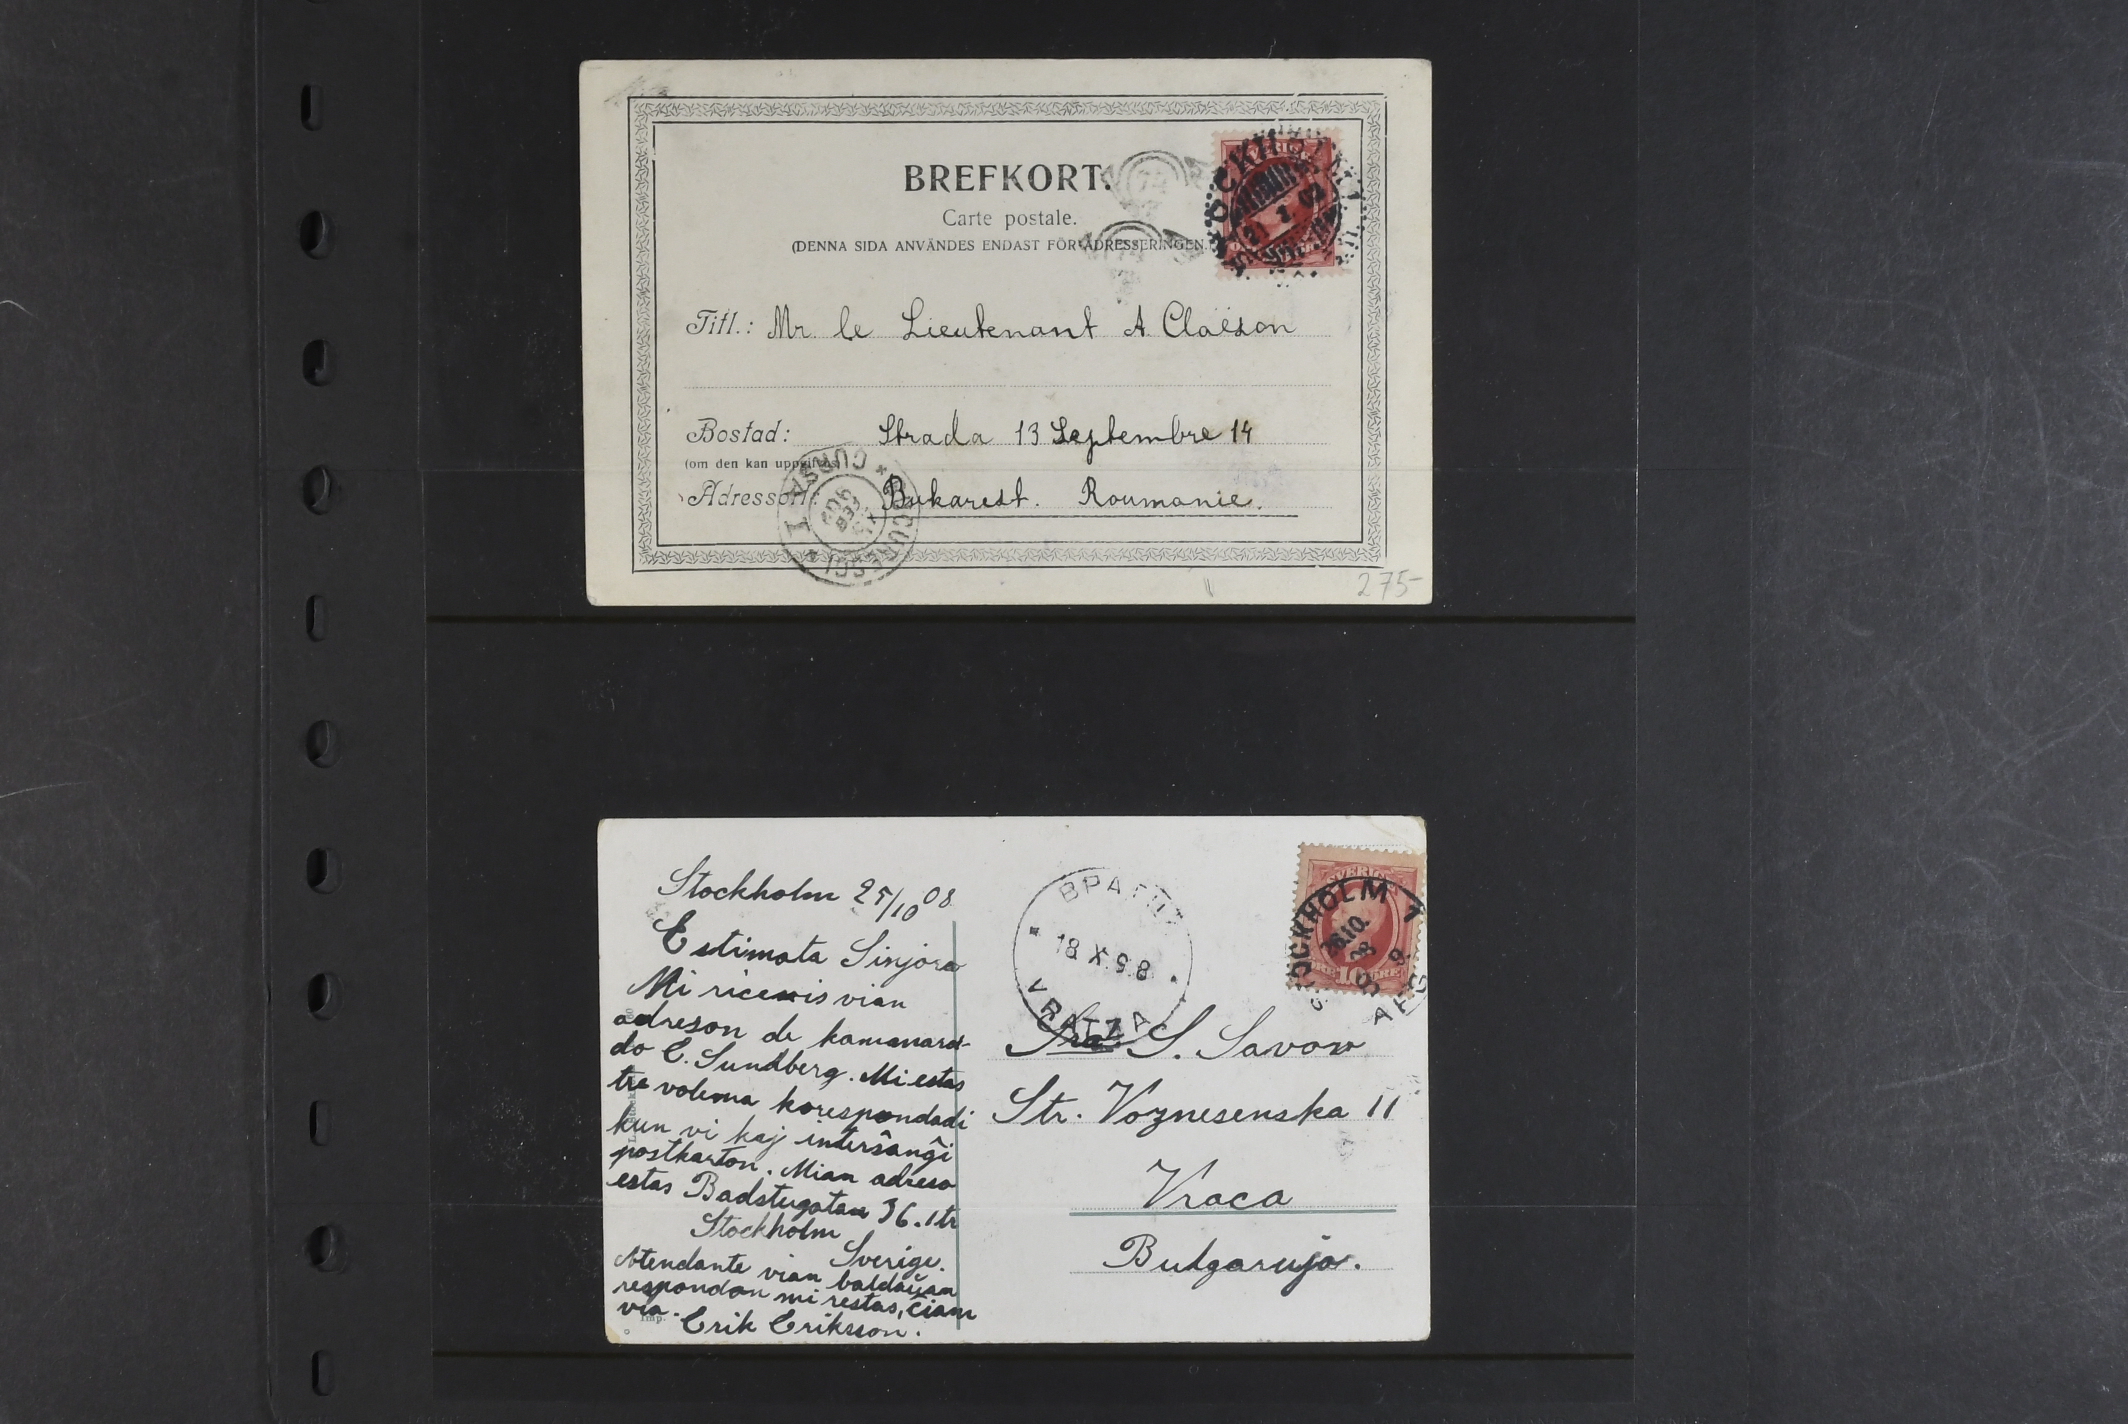 BREFKORT.
Carte postale.
(DENNA SIDA ANVÄNDES ENDAST FÖR ADRESSERINGEN.)
SVERIGE
Titl.: Mr. le Lieutenant A. Claëson
Bostad: Strada 13 Septembre 14
(om den kan uppgifvas)
Adressort: Bukarest. Roumanie.
BUCURESCI
CURSA I
275-
Stockholm 25/10 08
Estimata Sinjoro
Mi ricevis vian
adreson de kamarad-
do C. Sundberg. Mi estas
tre volema korespondadi
kun vi kaj interŝanĝi
postkarton. Mian adreso
estas Badstugatan 36. 1 tr
Stockholm
Sverige.
Atendante vian baldaŭan
respondon mi restas, ĉiam
via.
Erik Eriksson.
Imp.
VRATZA
SVERIGE
10
STOCKHOLM 1
26.10.
AFG
S. Savow
Str. Voznesenska 11
Vraca
Bulgarujo.